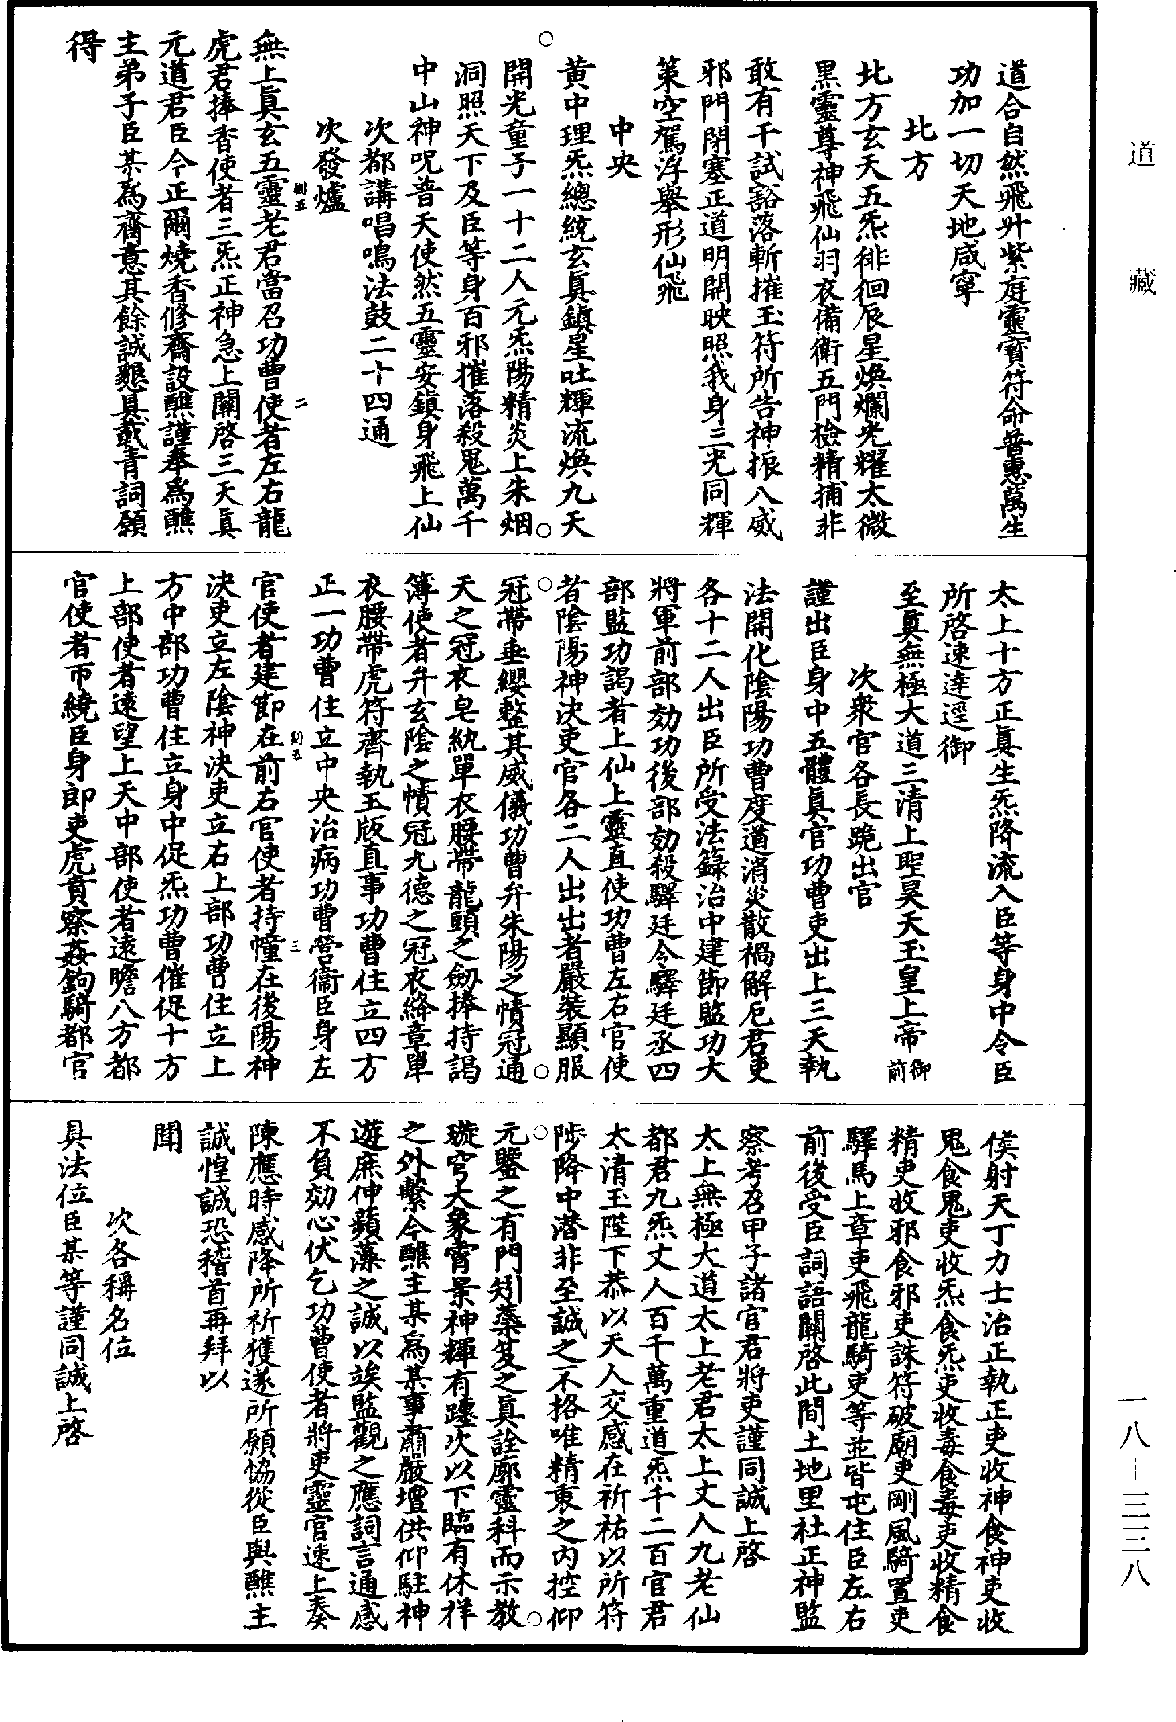 道藏
道合自然飛升紫庭靈寶符命普惠萬生
功加一切天地咸寧
北方
北方玄天五炁徘徊辰星煥爛光耀太微
黑靈尊神飛仙羽衣備衛五門檢精捕非
敢有干試豁落斬摧玉符所告神振八威
邪門閉塞正道明開映照我身三光同輝
策空駕浮舉形仙飛
中央
黃中理炁總統玄真鎮星吐輝流煥九天
開光童子一十二人元炁陽精炎上朱烟
洞照天下及臣等身百邪摧落殺鬼萬千
中山神呪普天使然五靈安鎮身飛上仙
次都講唱鳴法鼓二十四通
次發爐
無上真玄五靈老君當召功曹使者左右龍
虎君捧香使者三炁正神急上關啓三天真
元道君臣今正爾燒香修齋設醮謹奉為醮
主弟子臣某為齋意其餘誠懇具載青詞願
得
太上十方正真生炁降流入臣等身中令臣
所啓速達逕御
至真無極大道三清上聖昊天玉皇上帝御前
次衆官各長跪出官
謹出臣身中五體真官功曹吏出上三天執
法開化陰陽功曹度道消災散禍解厄君吏
各十二人出臣所受法籙治中建節監功大
將軍前部効功後部効殺驛廷令驛廷丞四
部監功謁者上仙上靈直使功曹左右官使
者陰陽神決吏官各二人出出者嚴裝顯服
冠帶垂纓整其威儀功曹弁朱陽之幘冠通
天之冠衣皂紈單衣腰帶龍頭之劔捧持謁
簿使者弁玄陰之幘冠九德之冠衣絳章單
衣腰帶虎符齊執玉版直事功曹住立四方
正一功曹住立中央治病功曹營衞臣身左
官使者建節在前右官使者持幢在後陽神
決吏立左陰神決吏立右上部功曹住立上
方中部功曹住立身中促炁功曹催促十方
上部使者遠望上天中部使者遠瞻八方都
官使者帀繞臣身郎吏虎賁察姦鉤騎都官
僕射天丁力士治正執正吏收神食神吏收
鬼食鬼吏收炁食炁吏收毒食毒吏收精食
精吏收邪食邪吏誅符破廟吏剛風騎置吏
驛馬上章吏飛龍騎吏等並皆屯住臣左右
前後受臣詞語關啓此間土地里社正神監
察考召甲子諸官君將吏謹同誠上啓
太上無極大道太上老君太上丈人九老仙
都君九炁丈人百千萬重道炁千二百官君
太清玉陛下恭以天人交感在祈祐以所符
陟降中潛非至誠之不格唯精衷之內控仰
元鑒之有門矧蘂笈之真詮廓靈科而示教
璇穹大象霄景神輝有躔次以下臨有休祥
之外繫今醮主某為某事肅嚴壇供仰駐神
遊庶伸蘋藻之誠以竢監觀之應詞言通感
不負効心伏乞功曹使者將吏靈官速上奏
陳應時感降所祈獲遂所願協從臣與醮主
誠惶誠恐稽首再拜以
聞
次各稱名位
具法位臣某等謹同誠上啓
一八—三三八